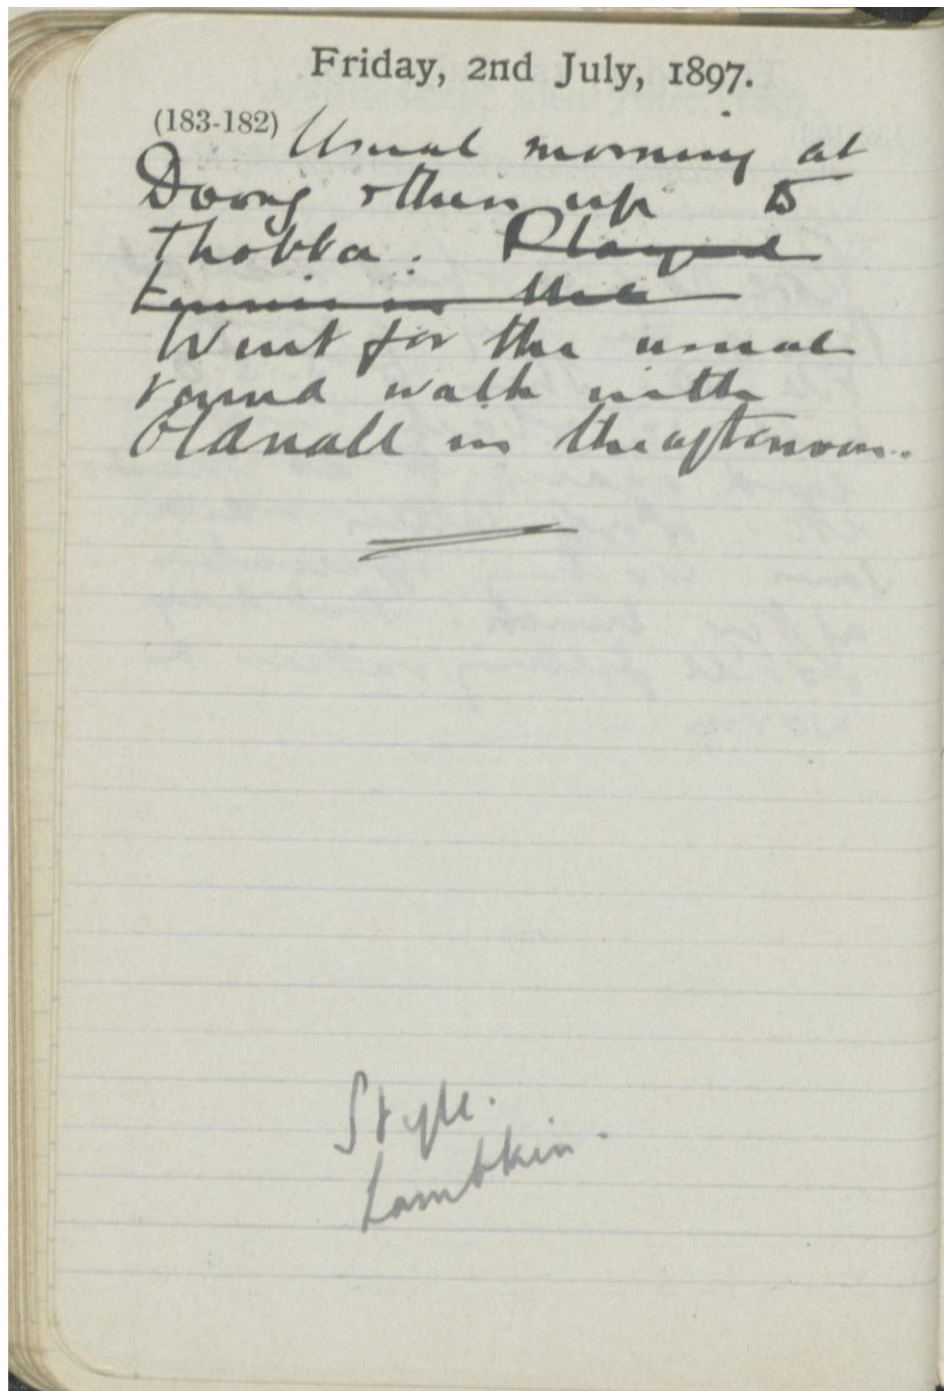 Friday, 2nd July, 1897.
(183-182) Usual morning at
Doong & then up to
Thobba. Played
tennis in the
Went for the usual
round walk with
Oldnall in the afternoon.
Style.
Lambkin.